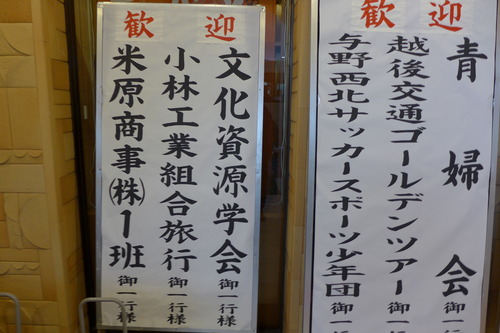 歓迎
青婦会 御一行様
越後交通ゴールデンツアー 御一行様
与野西北サッカースポーツ少年団 御一行様
歓迎
文化資源学会 御一行様
小林工業組合旅行 御一行様
米原商事(株)1班 御一行様